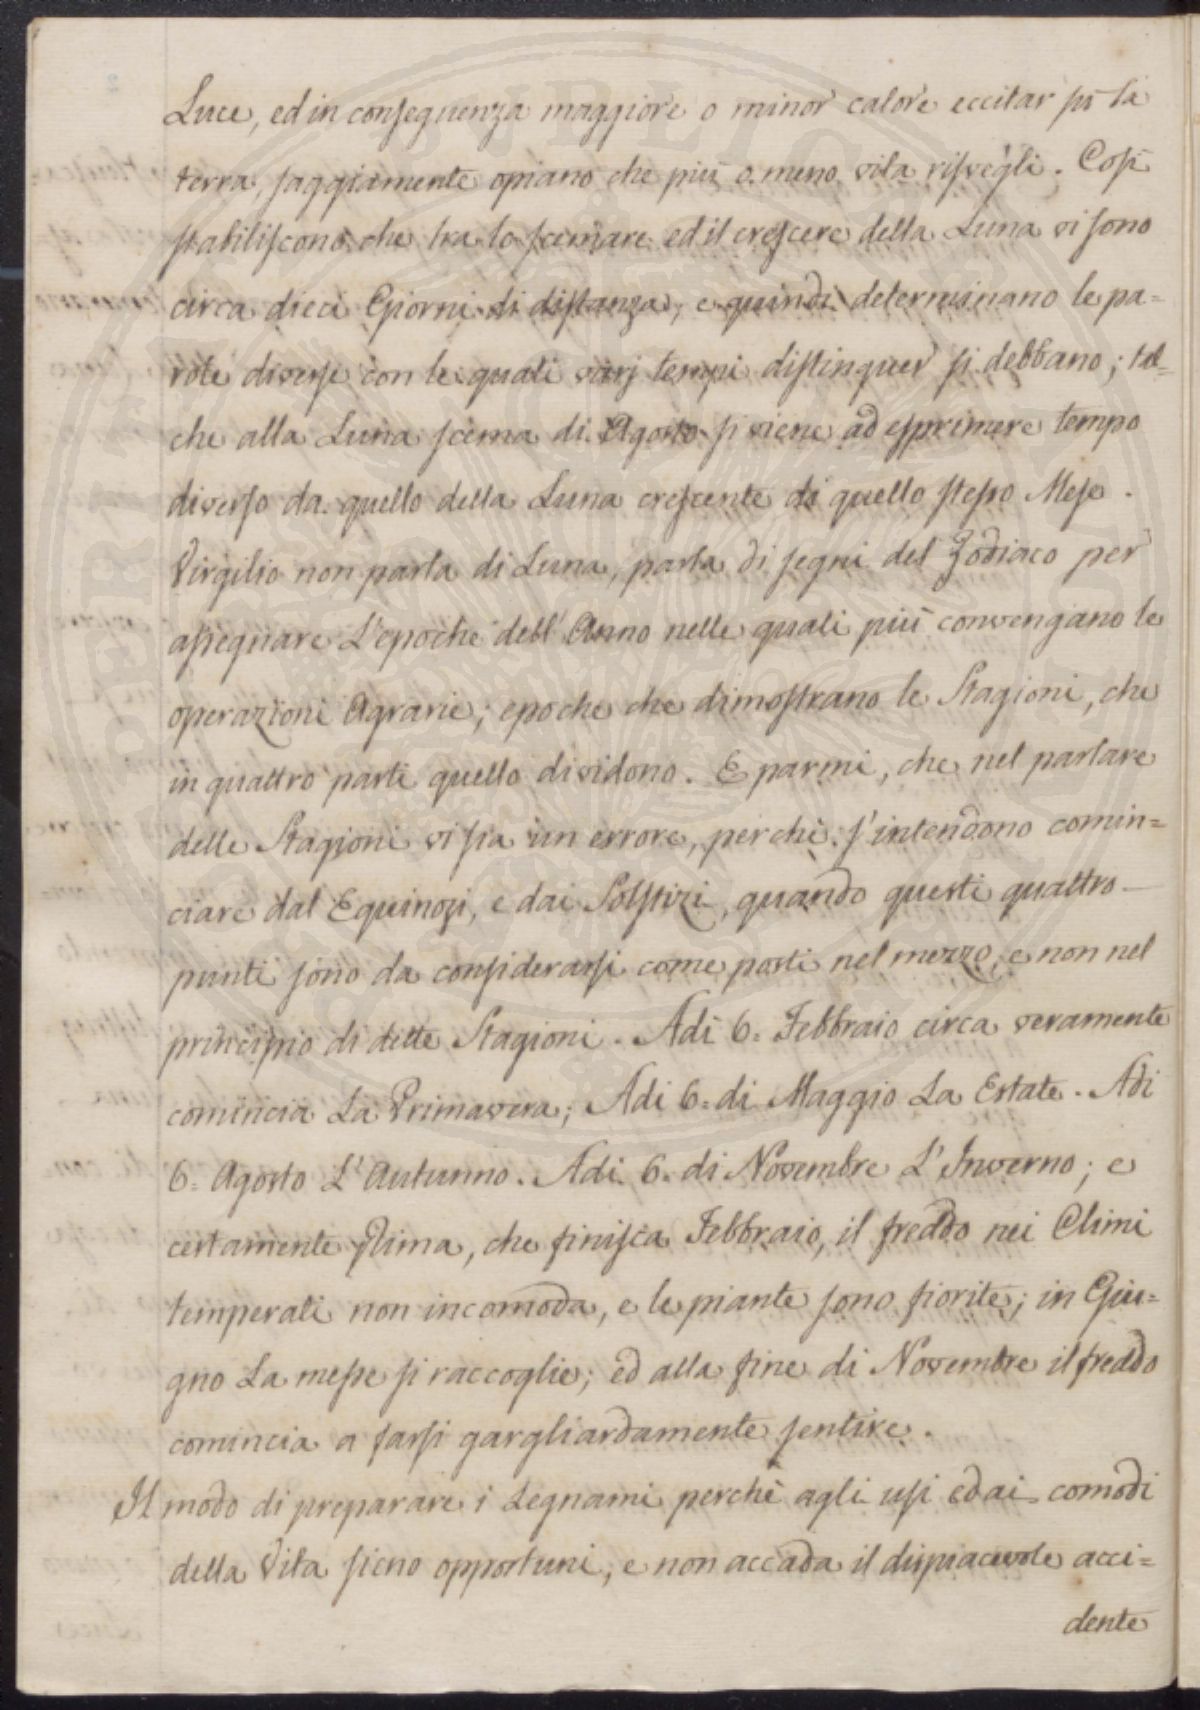 Luce, ed in conseguenza maggiore o minor calore eccitar su la
terra, saggiamente opiano che più o meno vita risvegli. Così
stabiliscono, che tra lo scemare ed il crescere della Luna vi sono
circa dieci Giorni di distanza, e quindi determinano le pa=
role diverse con le quali varj tempi distinguer si debbano; tal=
che alla Luna scema di Agosto si viene ad esprimere tempo
diverso da quello della Luna crescente di quello stesso Mese.
Virgilio non parla di Luna, parla di segni del Zodiaco per
assegnare L'epoche dell'Anno nelle quali più convengano le
operazioni Agrarie; epoche che dimostrano le Stagioni, che
in quattro parti quello dividono. E parmi, che nel parlare
delle Stagioni vi sia un errore, perchè s'intendono comin=
ciare dal Equinozi, e dai Solstizi, quando questi quattro
punti sono da considerarsi come posti nel mezzo, e non nel
principio di dette Stagioni. Adi 6. Febbraio circa veramente
comincia La Primavera; Adi 6. di Maggio La Estate. Adi
6. Agosto L'Autunno. Adi 6. di Novembre L'Inverno; e
certamente prima, che finisca Febbraio, il freddo nei Climi
temperati non incomoda, e le piante sono fiorite; in Giu=
gno La messe si raccoglie; ed alla fine di Novembre il freddo
comincia a farsi gargliardamente sentire.
Il modo di preparare i Legnami perchè agli usi ed ai comodi
della Vita sieno opportuni, e non accada il dispiacevole acci=
dente